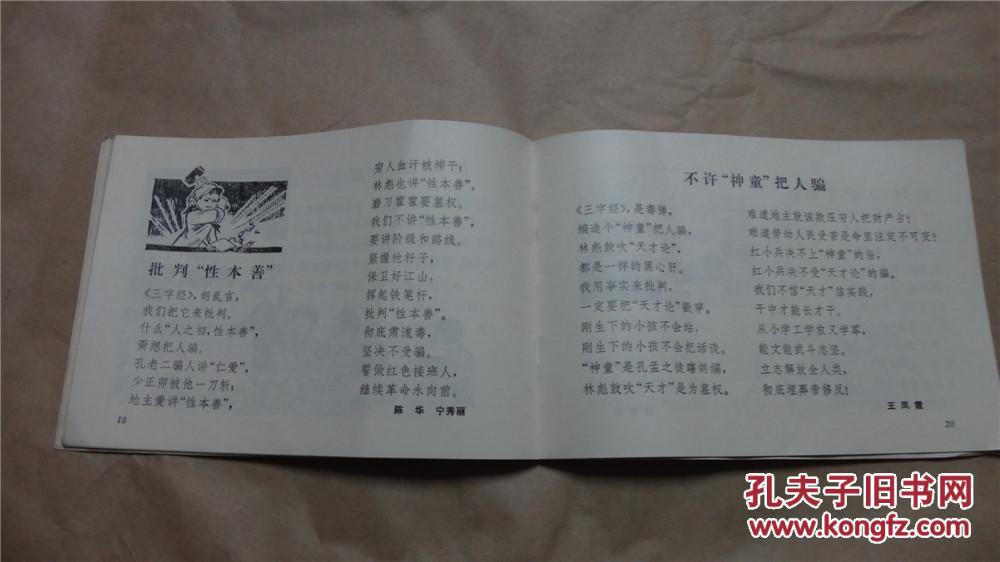 批判“性本善”
《三字经》，胡乱言，
我们把它来批判。
什么“人之初，性本善”，
妄想把人骗。
孔老二骗人讲“仁爱”，
少正卯被他一刀斩；
地主爱讲“性本善”，
19
穷人血汗被榨干；
林彪也讲“性本善”，
磨刀霍霍要篡权。
我们不讲“性本善”，
要讲阶级和路线。
紧握枪杆子，
保卫好江山，
挥起铁笔杆，
批判“性本善”。
彻底肃流毒，
坚决不受骗。
誓做红色接班人，
继续革命永向前。
陈华 宁秀丽
不许“神童”把人骗
《三字经》，是毒弹，
编造个“神童”把人骗，
林彪鼓吹“天才论”，
都是一样的黑心肝。
我用事实来批判，
一定要把“天才论”戳穿。
刚生下的小孩不会站，
刚生下的小孩不会把话谈。
“神童”是孔孟之徒瞎胡编，
林彪鼓吹“天才”是为篡权。
难道地主就该欺压穷人把财产占？
难道劳动人民受苦是命里注定不可变？
红小兵决不上“神童”的当，
红小兵决不受“天才论”的骗。
我们不信“天才”信实践，
干中才能长才干。
从小学工学农又学军，
能文能武斗志坚。
立志解放全人类，
彻底埋葬帝修反！
王凤霞
20
孔夫子旧书网
www.kongfz.com